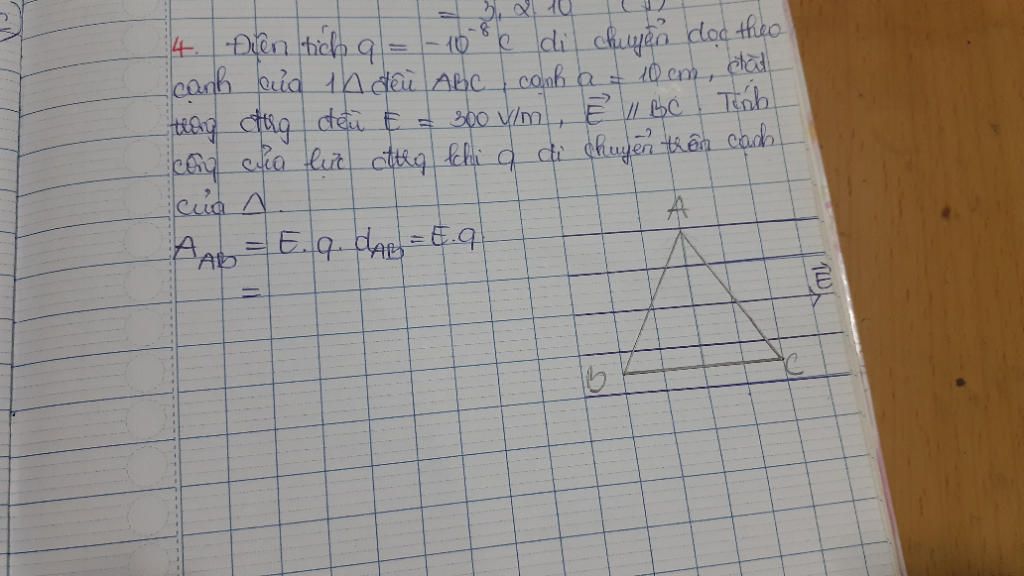 = 3,2.10
4. Điện tích q = -10⁻⁸ C di chuyển dọc theo
cạnh của 1 Δ đều ABC, cạnh a = 10 cm, đặt
trong đtrg đều E = 300 V/m, E⃗ // BC. Tính
công của lực đtrg khi q di chuyển trên cạnh
của Δ.
A_AB = E.q.d_AB = E.q
=
A
E⃗
B
C